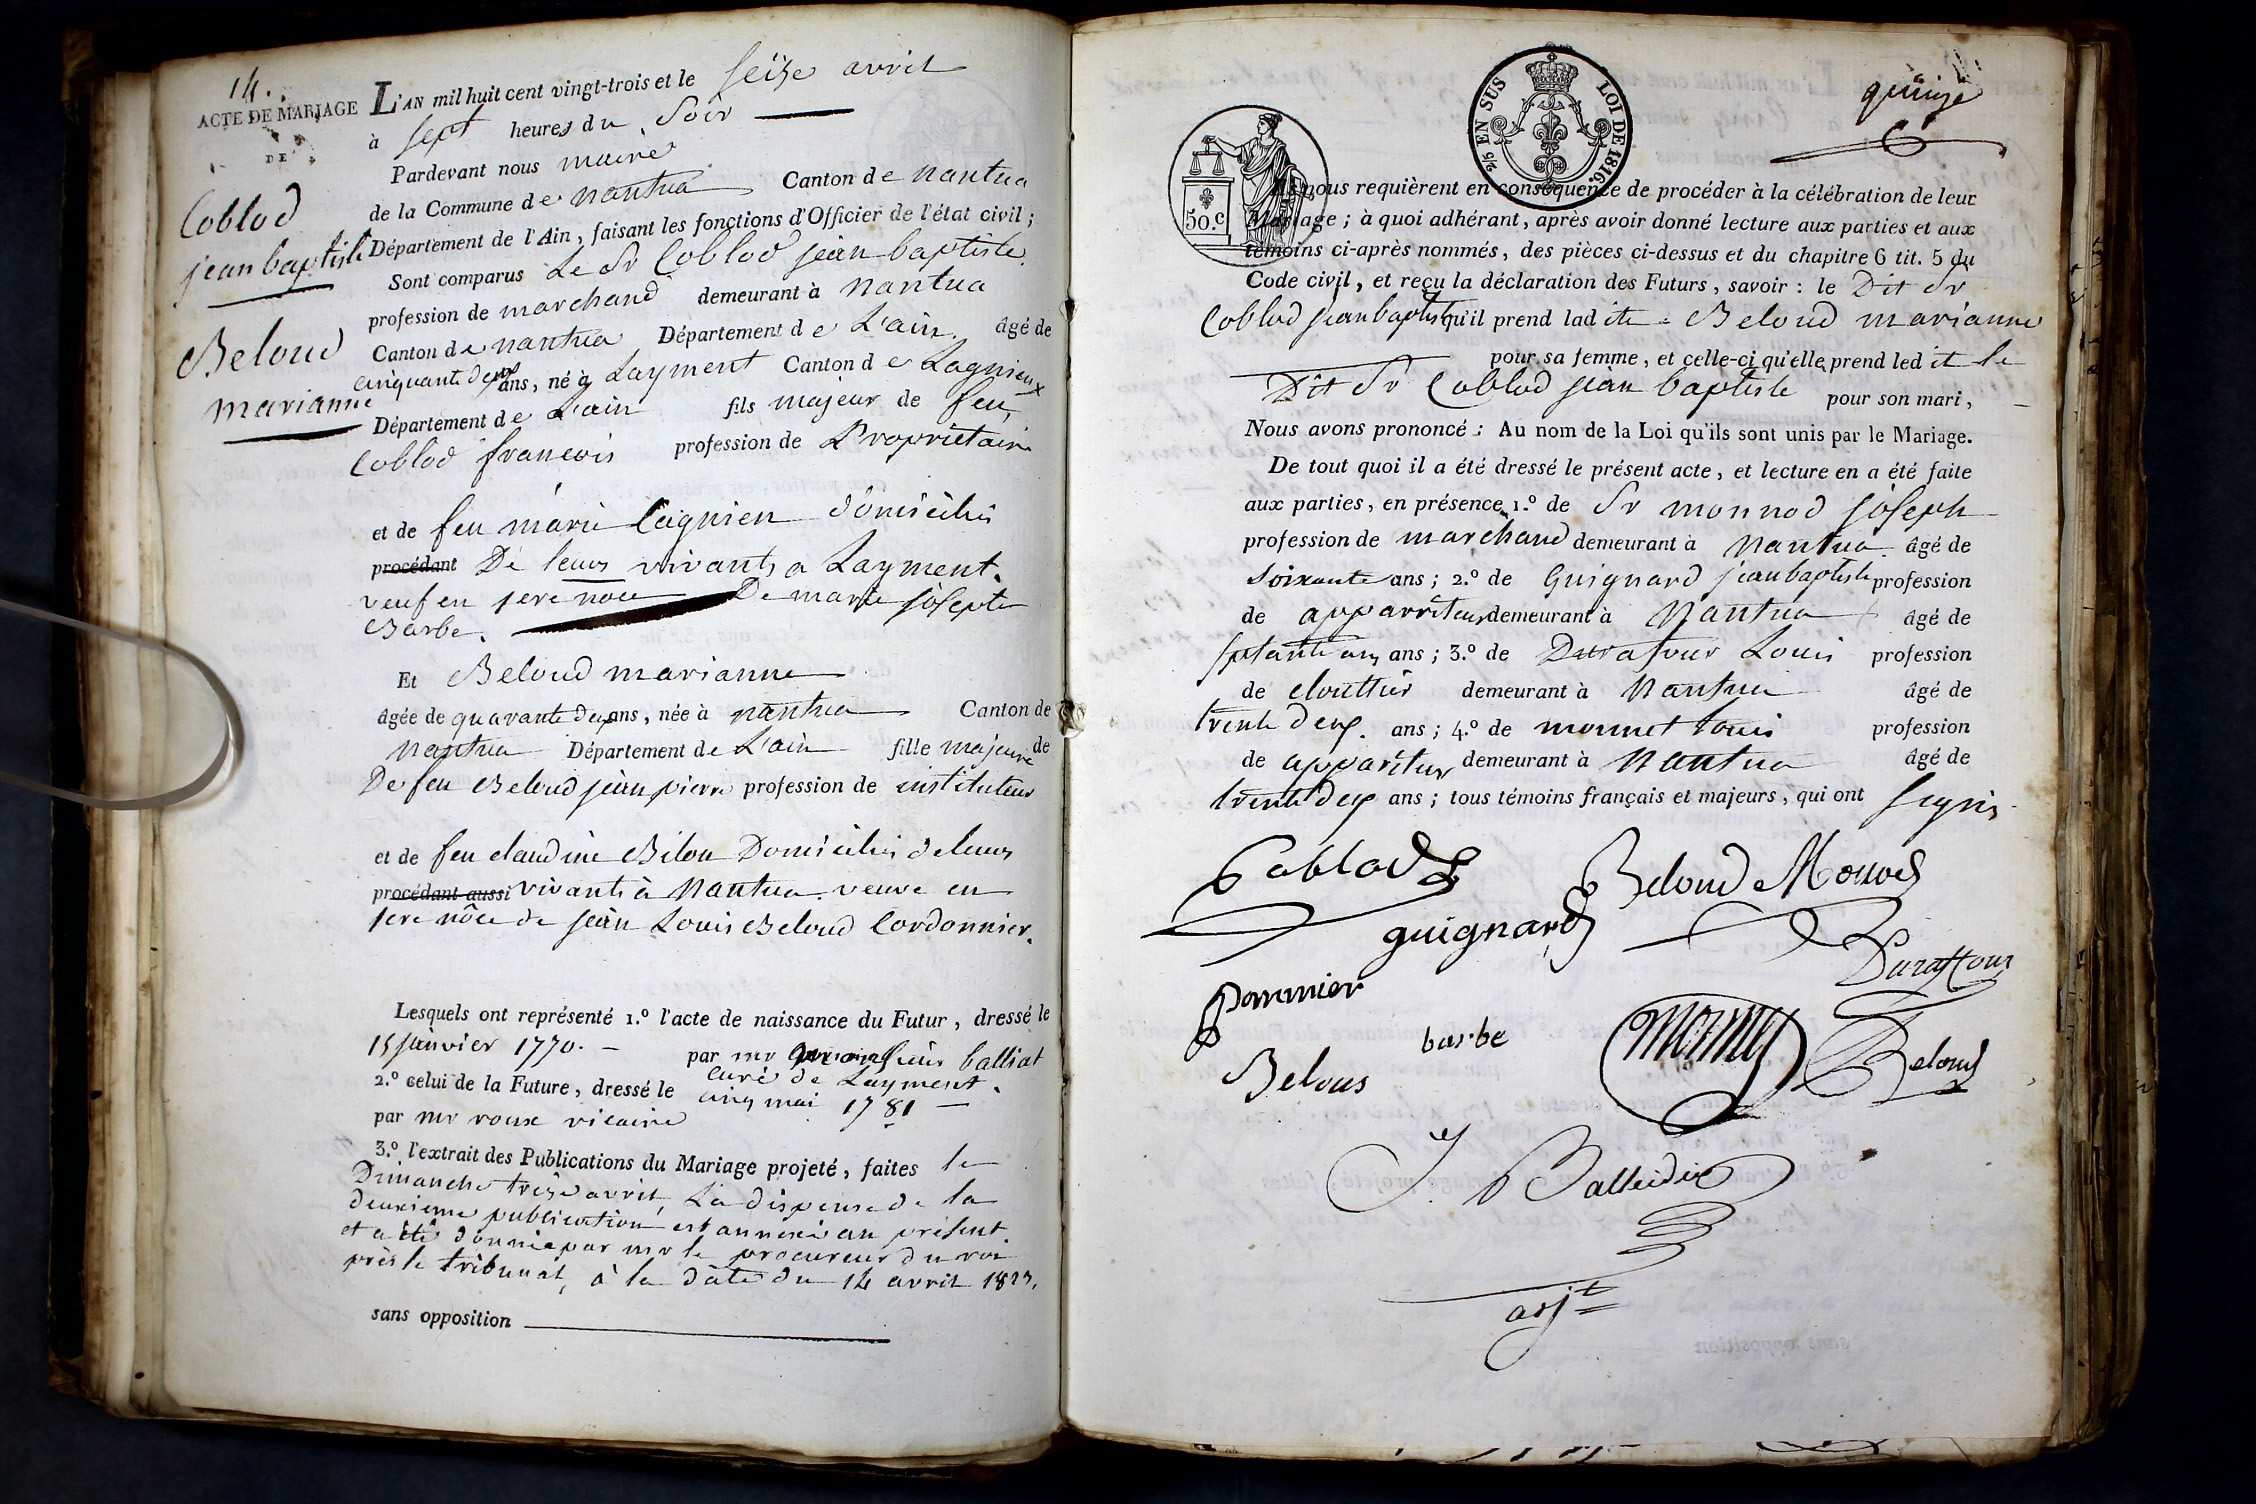 14.
ACTE DE MARIAGE
DE
Coblod
jean baptiste
Beloud
marianne
L'AN mil huit cent vingt-trois et le seize avril
à sept heures du soir
Pardevant nous maire
de la Commune de nantua Canton de nantua
Département de l'Ain, faisant les fonctions d'Officier de l'état civil ;
Sont comparus Le Sr Coblod jean baptiste
profession de marchand demeurant à nantua
Canton de nantua Département de L'ain âgé de
cinquante deux ans, né à Layment Canton de Lagnieux
Département de L'ain fils majeur de feu
Coblod francois profession de Propriétaire
et de feu marie Cagnien domiciliés
procédant De leurs vivants a Layment.
veuf en 1ere noce De marie josepte
Barbe.
Et Beloud marianne
âgée de quarante deux ans, née à nantua Canton de
nantua Département de L'ain fille majeure de
De feu Beloud jean pierre profession de instituteur
et de feu claudine Bilon Domiciliés de leurs
procédant aussi vivants à Nantua. veuve en
1ere nôce de jean Louis Beloud Cordonnier.
Lesquels ont représenté 1.º l'acte de naissance du Futur, dressé le
15 janvier 1770. par mr balliat
curé de Layment.
2.º celui de la Future, dressé le cinq mai 1781
par mr roux vicaire
3.º l'extrait des Publications du Mariage projeté, faites le
Dimanche treize avril, La dispense de la
deuxieme publication est annexée au présent.
et a été donnée par mr le procureur du roi
près le tribunal, à la date du 14 avril 1823.
sans opposition
quinze
2/5 EN SUS LOI DE 1816.
50.c
Ils nous requièrent en conséquence de procéder à la célébration de leur
Mariage ; à quoi adhérant, après avoir donné lecture aux parties et aux
témoins ci-après nommés, des pièces ci-dessus et du chapitre 6 tit. 5 du
Code civil, et reçu la déclaration des Futurs, savoir : le Dit Sr
Coblod jean baptiste qu'il prend ladite Beloud marianne
pour sa femme, et celle-ci qu'elle prend ledit le
Dit Sr Coblod jean baptiste pour son mari,
Nous avons prononcé : Au nom de la Loi qu'ils sont unis par le Mariage.
De tout quoi il a été dressé le présent acte, et lecture en a été faite
aux parties, en présence 1.º de Sr monnod joseph
profession de marchand demeurant à Nantua âgé de
soixante ans ; 2.º de Guignard jean baptiste profession
de apparriteur demeurant à Nantua âgé de
septante ans ans ; 3.º de Durafour Louis profession
de clouttier demeurant à Nantua âgé de
trente deux. ans ; 4.º de monnet Louis profession
de apparitur demeurant à Nantua âgé de
trente deux ans ; tous témoins français et majeurs, qui ont signés
Coblod
Beloud
guignard
Duraffour
Pommier
barbe
Belous
Beloud
J. B Balleidier
adjt